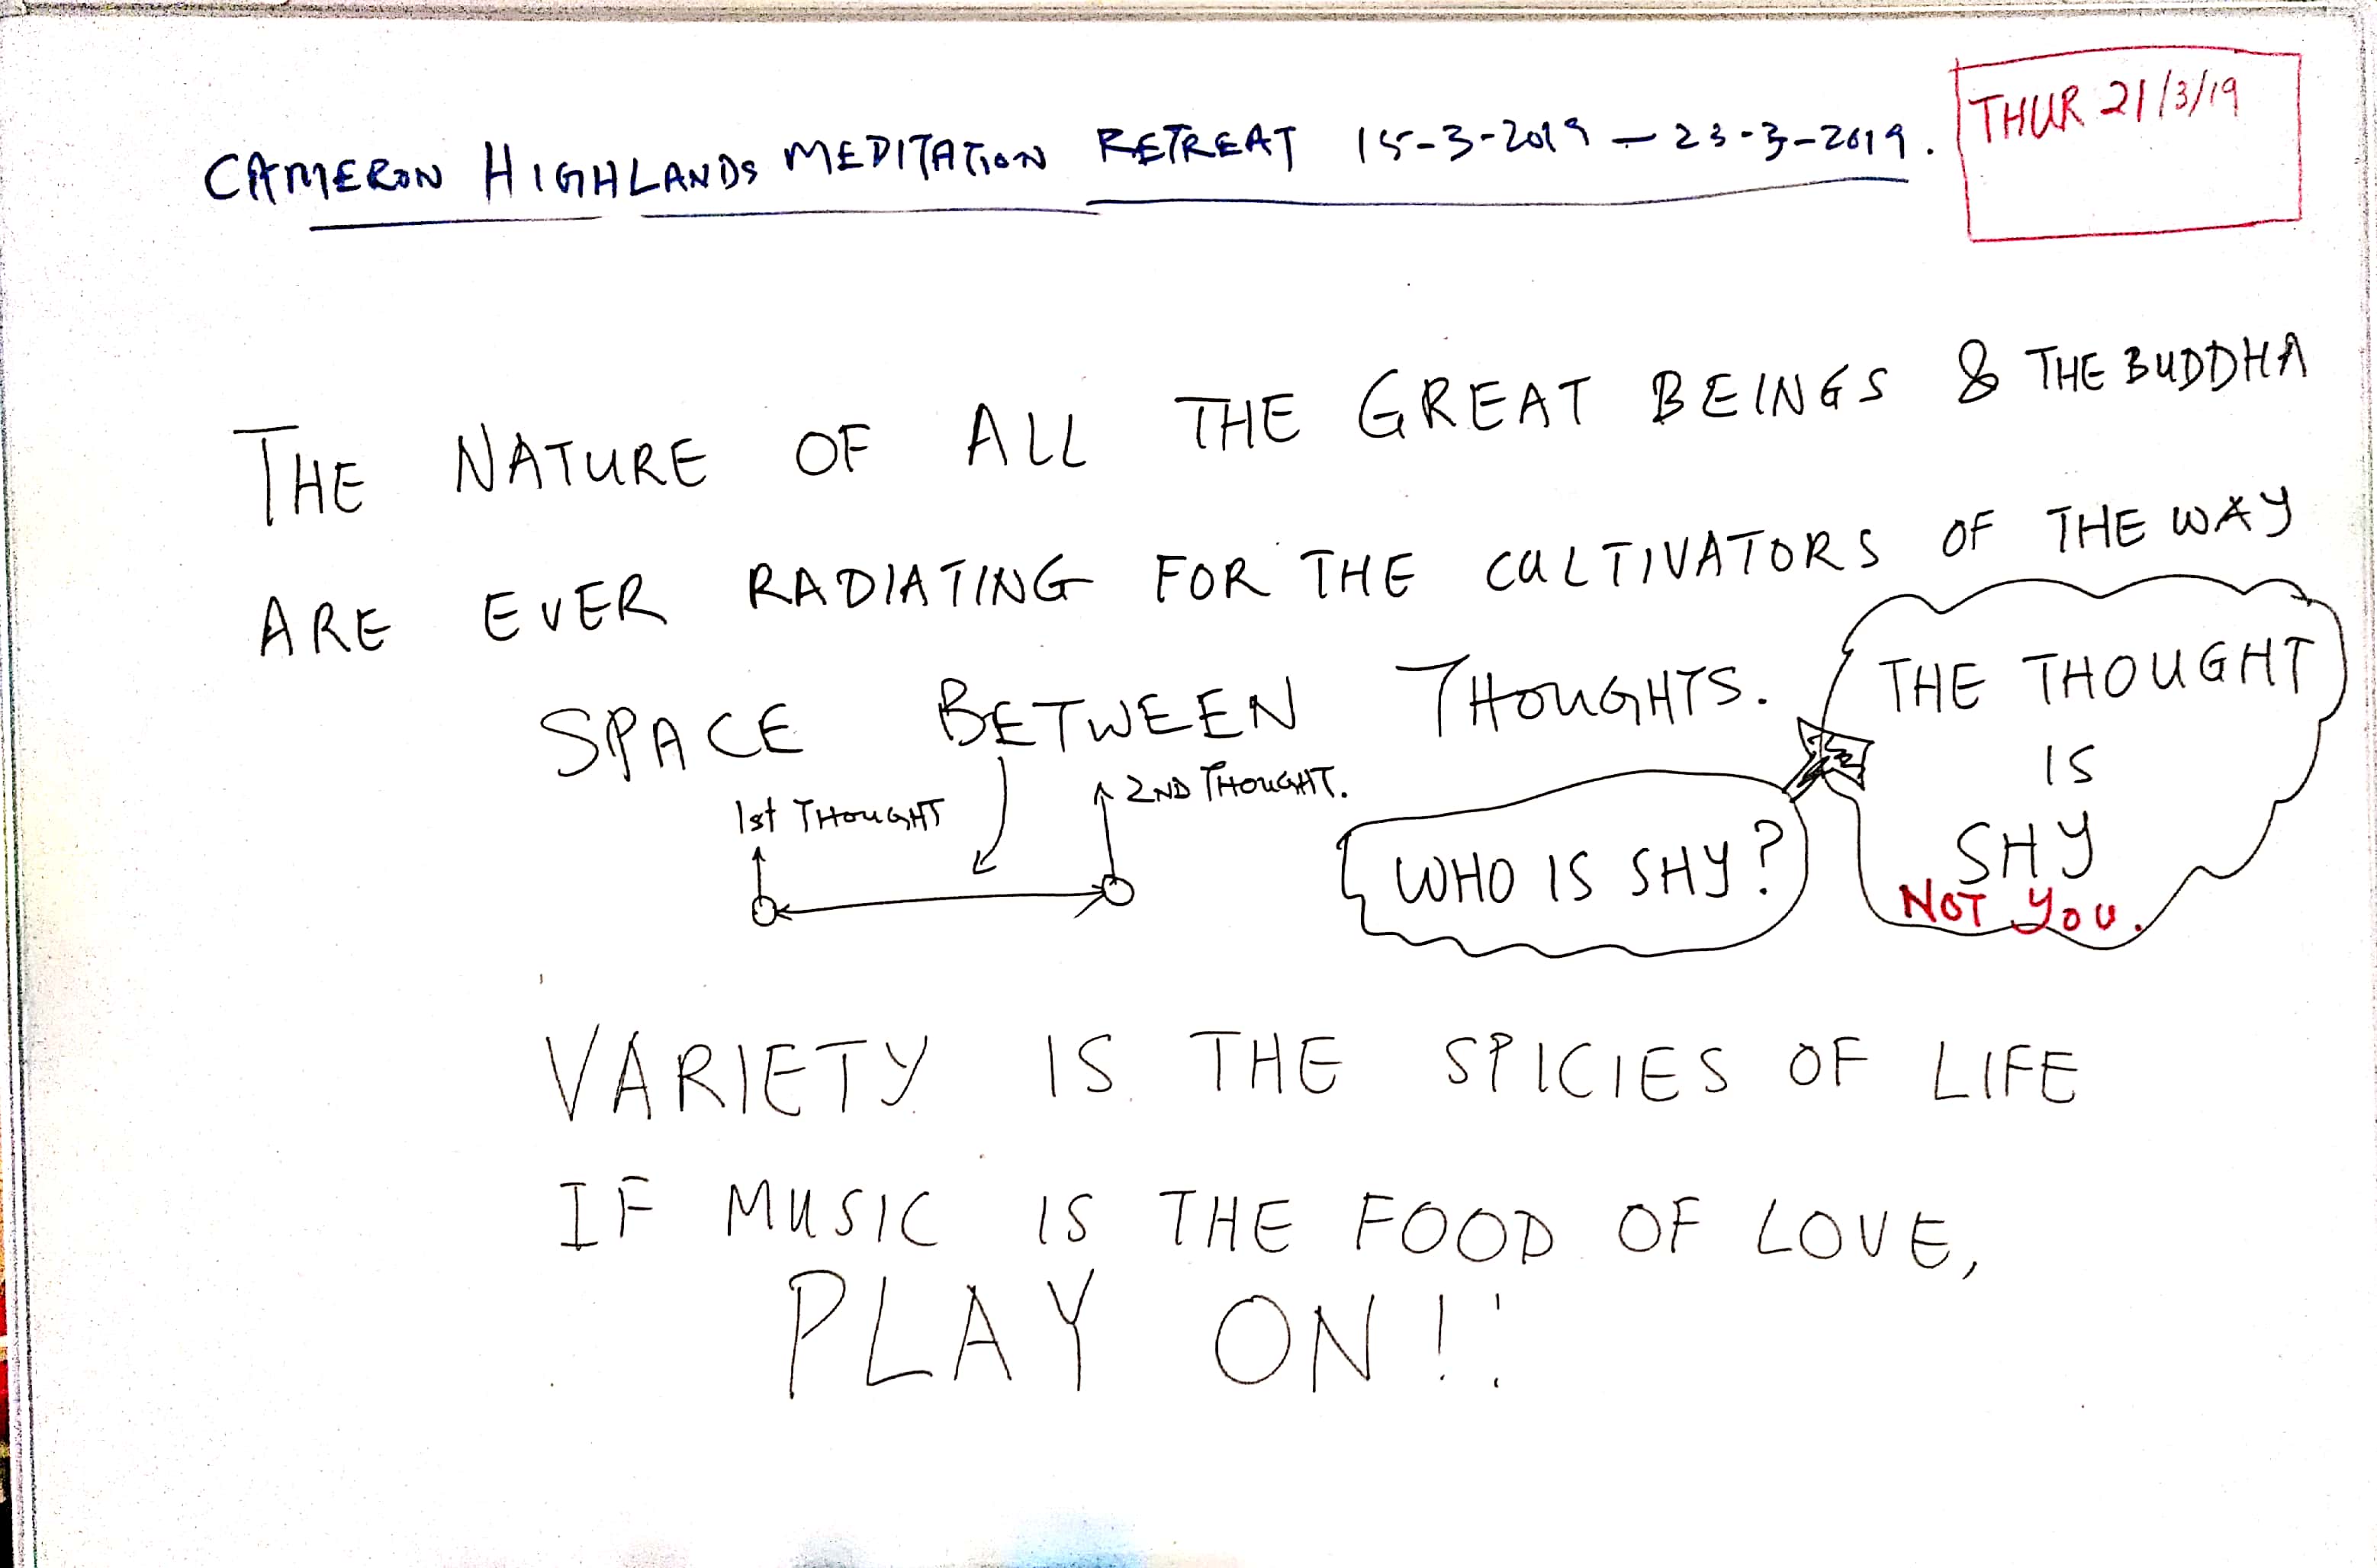 CAMERON HIGHLANDS MEDITATION RETREAT 15-3-2019 – 23-3-2019.
THUR 21/3/19
THE NATURE OF ALL THE GREAT BEINGS & THE BUDDHA
ARE EVER RADIATING FOR THE CULTIVATORS OF THE WAY
SPACE BETWEEN THOUGHTS.
1st THOUGHT
2ND THOUGHT.
WHO IS SHY?
THE THOUGHT
IS
SHY
NOT YOU.
VARIETY IS THE SPICIES OF LIFE
IF MUSIC IS THE FOOD OF LOVE,
PLAY ON!!